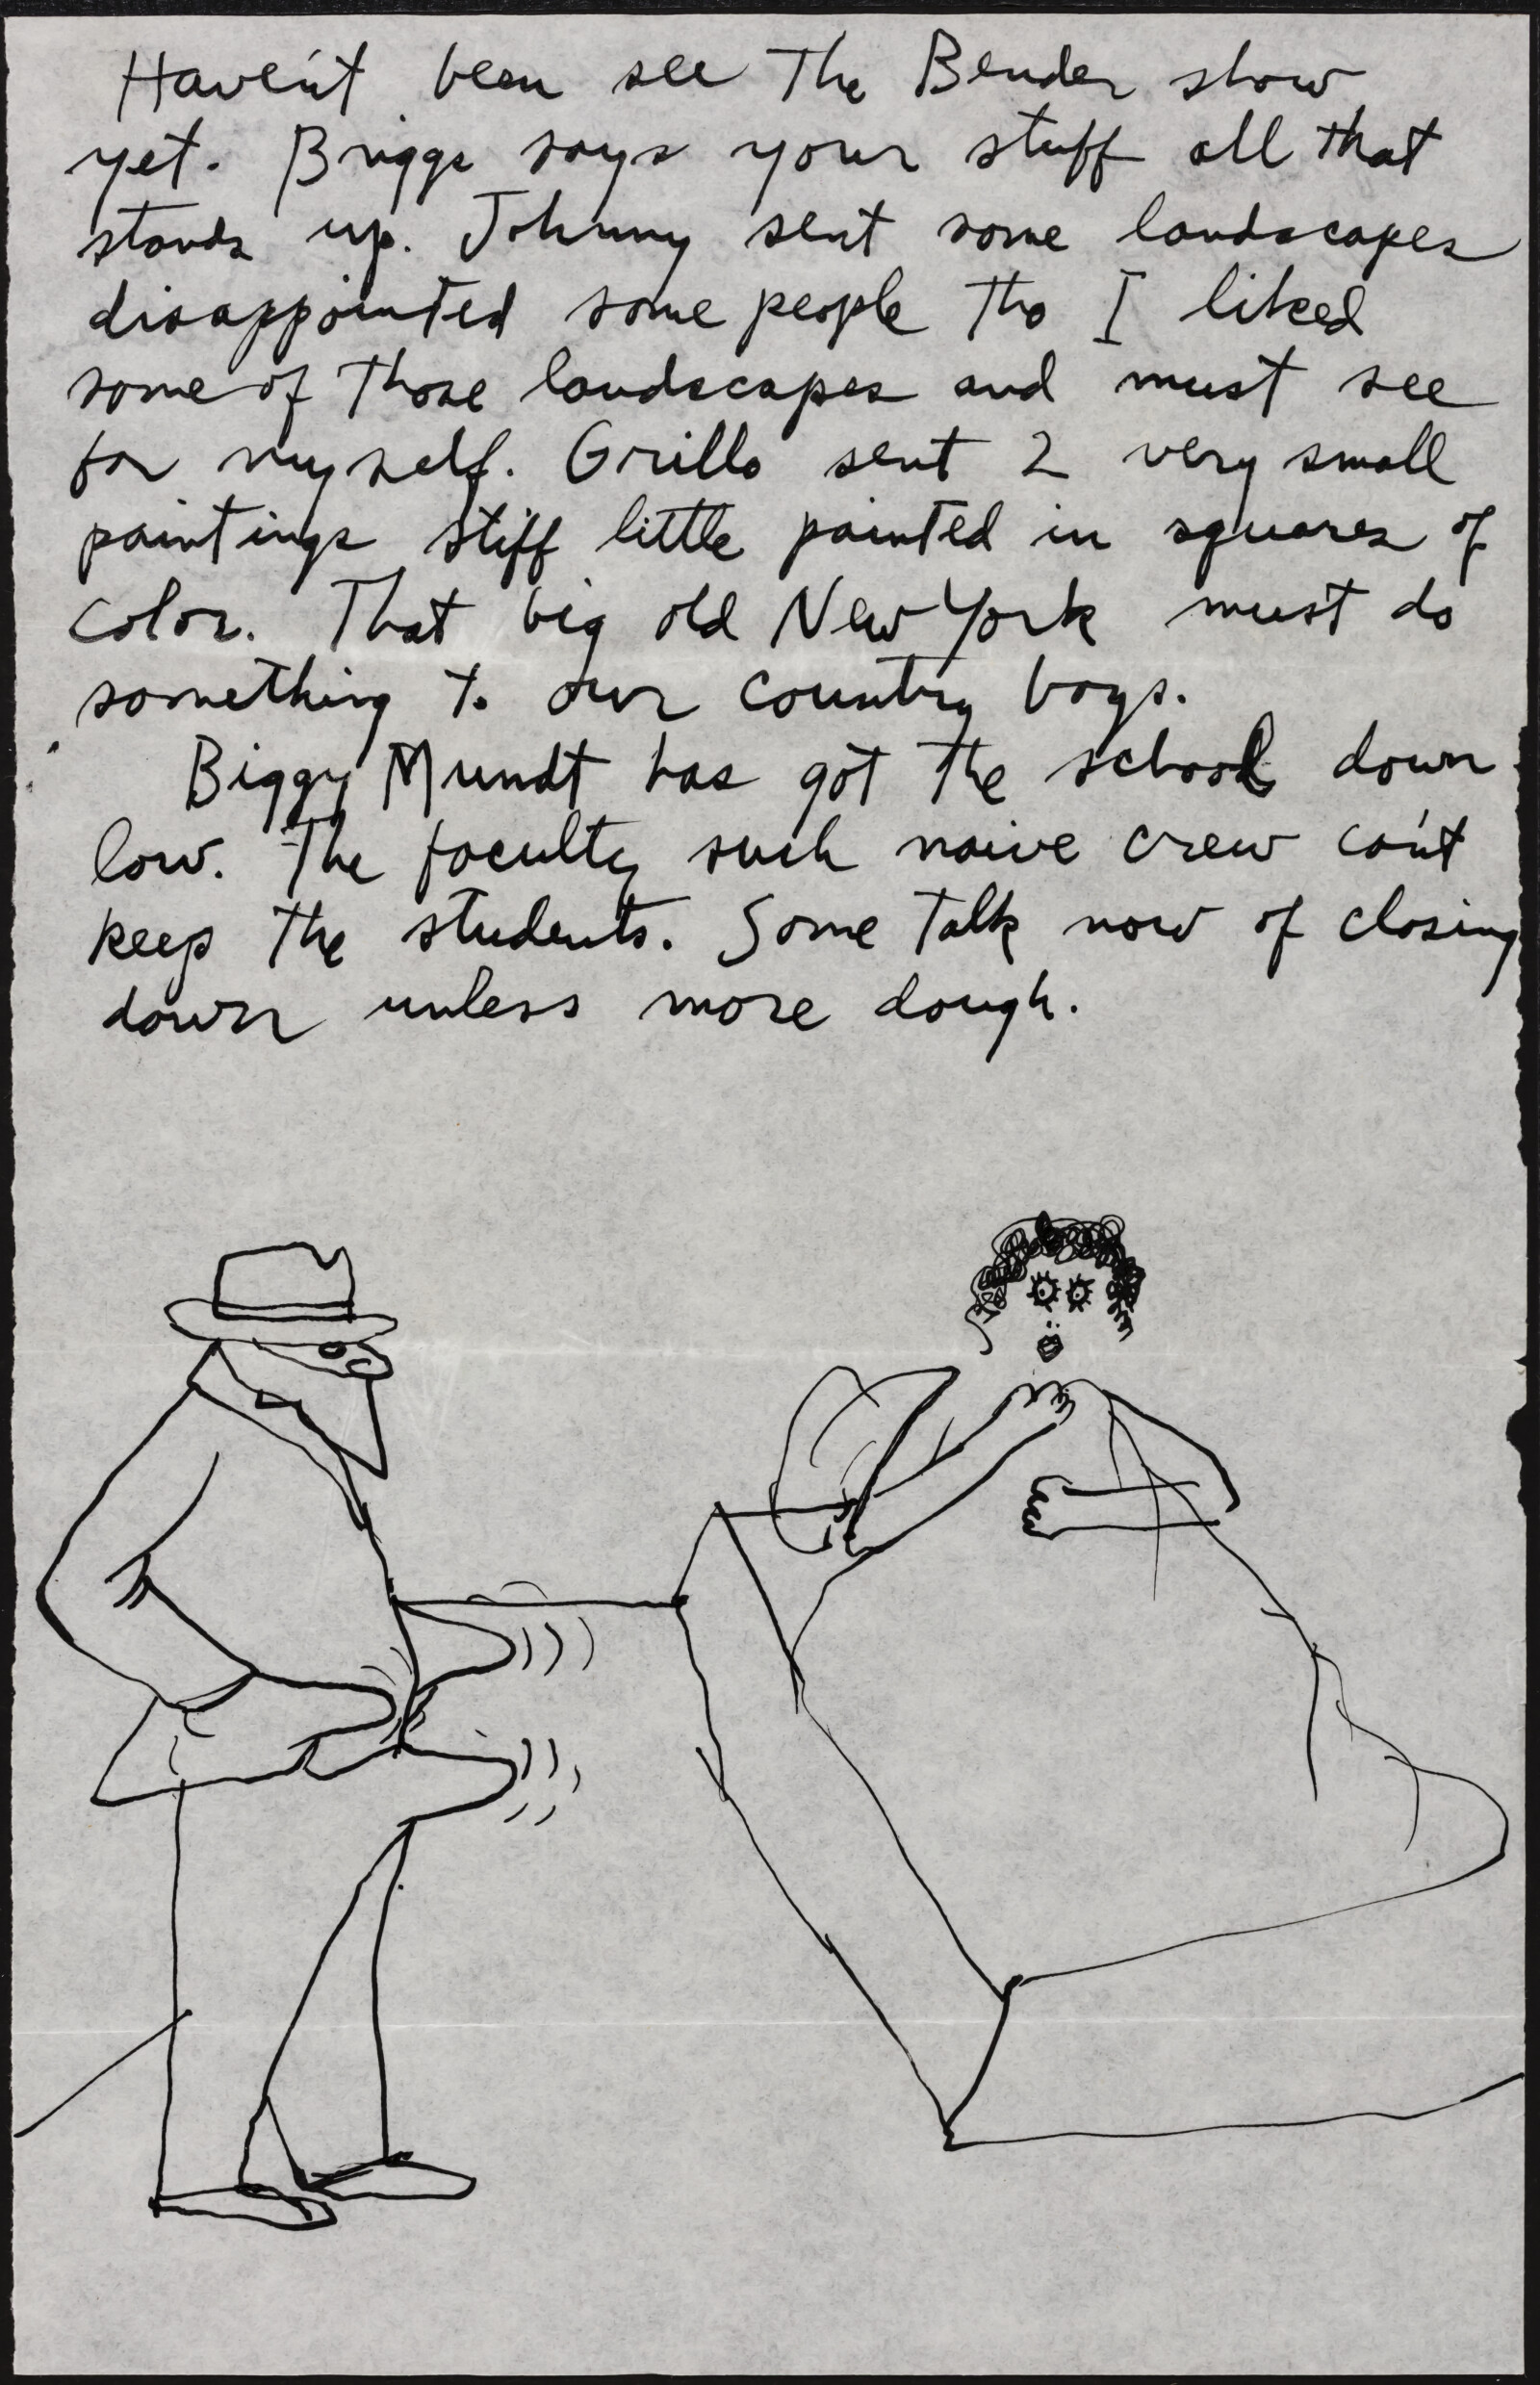 Haven't been see The Bender show
yet. Briggs says your stuff all that
stands up. Johnny sent some landscapes
disappointed some people tho I liked
some of those landscapes and must see
for myself. Grillo sent 2 very small
paintings stiff little painted in squares of
color. That big old New York must do
something to our country boys.
Biggy Mundt has got the school down
low. The faculty such naive crew can't
keep the students. Some talk now of closing
down unless more dough.